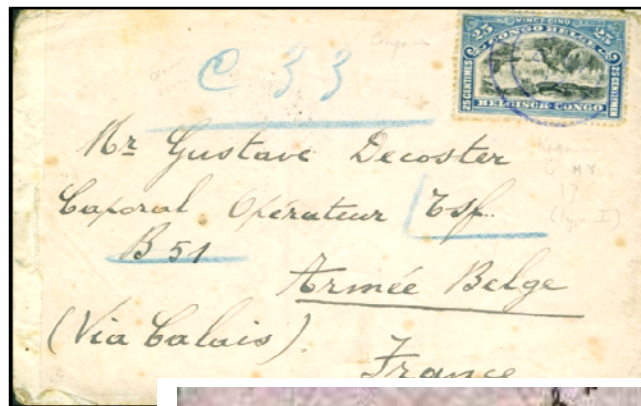 C 33
Congo
25 VINGT-CINQ 25
CONGO BELGE
25 CENTIMES
25 CENTIMES
BELGISCH-CONGO
Mr Gustave Decoster
Caporal Opérateur Tsf.
B 51
Armée Belge
(Via Calais)
France
MY
17
(type I)